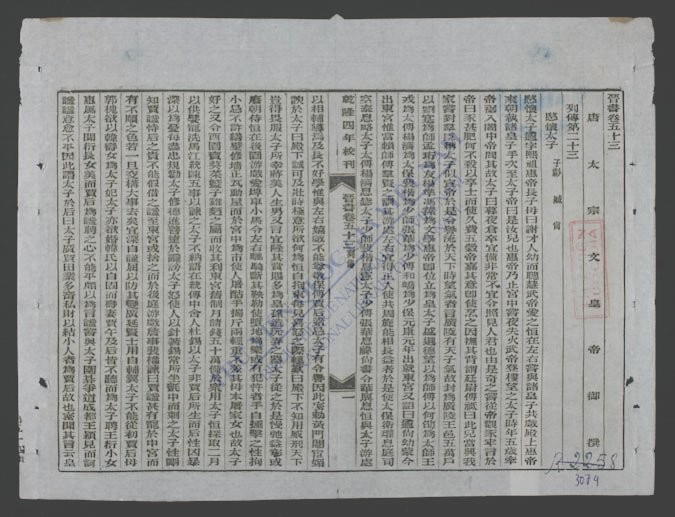 晉書卷五十三
唐太宗文皇帝御撰
列傳第二十三
愍懷太子 子彪 臧 尚
愍懷太子遹字熙祖惠帝長子母曰謝才人幼而聰慧武帝愛之恒在左右嘗與諸皇子共戲殿上惠帝
來朝執諸皇子手次至太子帝曰是汝兒也惠帝乃止宮中嘗夜失火武帝登樓望之太子時年五歲牽
帝裾入闇中帝問其故太子曰暮夜倉卒宜備非常不宜令照見人君也由是奇之嘗從帝觀豕牢言於
帝曰豕甚肥何不殺以享士而使久費五穀帝嘉其意即使烹之因撫其背謂廷尉傅祗曰此兒當興我
家嘗對羣臣稱太子似宣帝於是令譽流於天下時望氣者言廣陵有天子氣故封為廣陵王邑五萬戶
以劉寔為師孟珩為友楊準馮蓀為文學惠帝即位立為皇太子盛選德望以為師傅以何劭為太師王
戎為太傅楊濟為太保裴楷為少師張華為少傅和嶠為少保元康元年出就東宮又詔曰遹尚幼蒙今
出東宮惟當賴師傅羣賢之訓其游處左右宜得正人使共周旋能相長益者於是使太保衛瓘息庭司
空泰息略太子太傅楊濟息毖太子少師裴楷息憲太子少傅張華息禕尚書令華廙息恒與太子游處
乾隆四年校刊 晉書卷五十三 列傳 一
以相輔導焉及長不好學惟與左右嬉戲不能尊敬保傅賈后素忌太子有令譽因此密敕黃門閹宦媚
諛於太子曰殿下誠可及壯時極意所欲何為恒自拘束每見喜怒之際輒歎曰殿下不知用威刑天下
豈得畏服太子所幸蔣美人生男又言宜隆其賞賜多為皇孫造玩弄之器太子從之於是慢弛益彰或
廢朝侍恒在後園游戲愛埤車小馬令左右馳騎斷其鞅勒使墮地為樂或有犯忤者手自捶擊之性拘
小忌不許繕壁修牆正瓦動屋而於宮中為市使人屠酤手揣斤兩輕重不差其母本屠家女也故太子
好之又令西園賣葵菜籃子雞麪之屬而收其利東宮舊制月請錢五十萬備於衆用太子恒探取二月
以供嬖寵洗馬江統陳五事以諫之太子不納語在統傳中舍人杜錫以太子非賈后所生而后性凶暴
深以為憂每盡忠規勸太子修德進善遠於讒謗太子怒使人以針著錫常所坐氈中而刺之太子性剛
知賈謐恃后之貴不能假借之謐至東宮或捨之而於後庭游戲詹事裴權諫曰賈謐甚有寵於中宮而
有不順之色若一旦交構大事去矣宜深自謙屈以防其變廣延賢士用自輔翼太子不能從初賈后母
郭槐欲以韓壽女為太子妃太子亦欲婚韓氏以自固而壽妻賈午及后皆不聽而為太子聘王衍小女
惠風太子聞衍長女美而賈后為謐聘之心不能平頗以為言謐嘗與太子圍棊爭道成都王穎見而訶
謐謐意愈不平因此譖太子於后曰太子廣買田業多畜私財以結小人者為賈后故也密聞其言云皇
3079